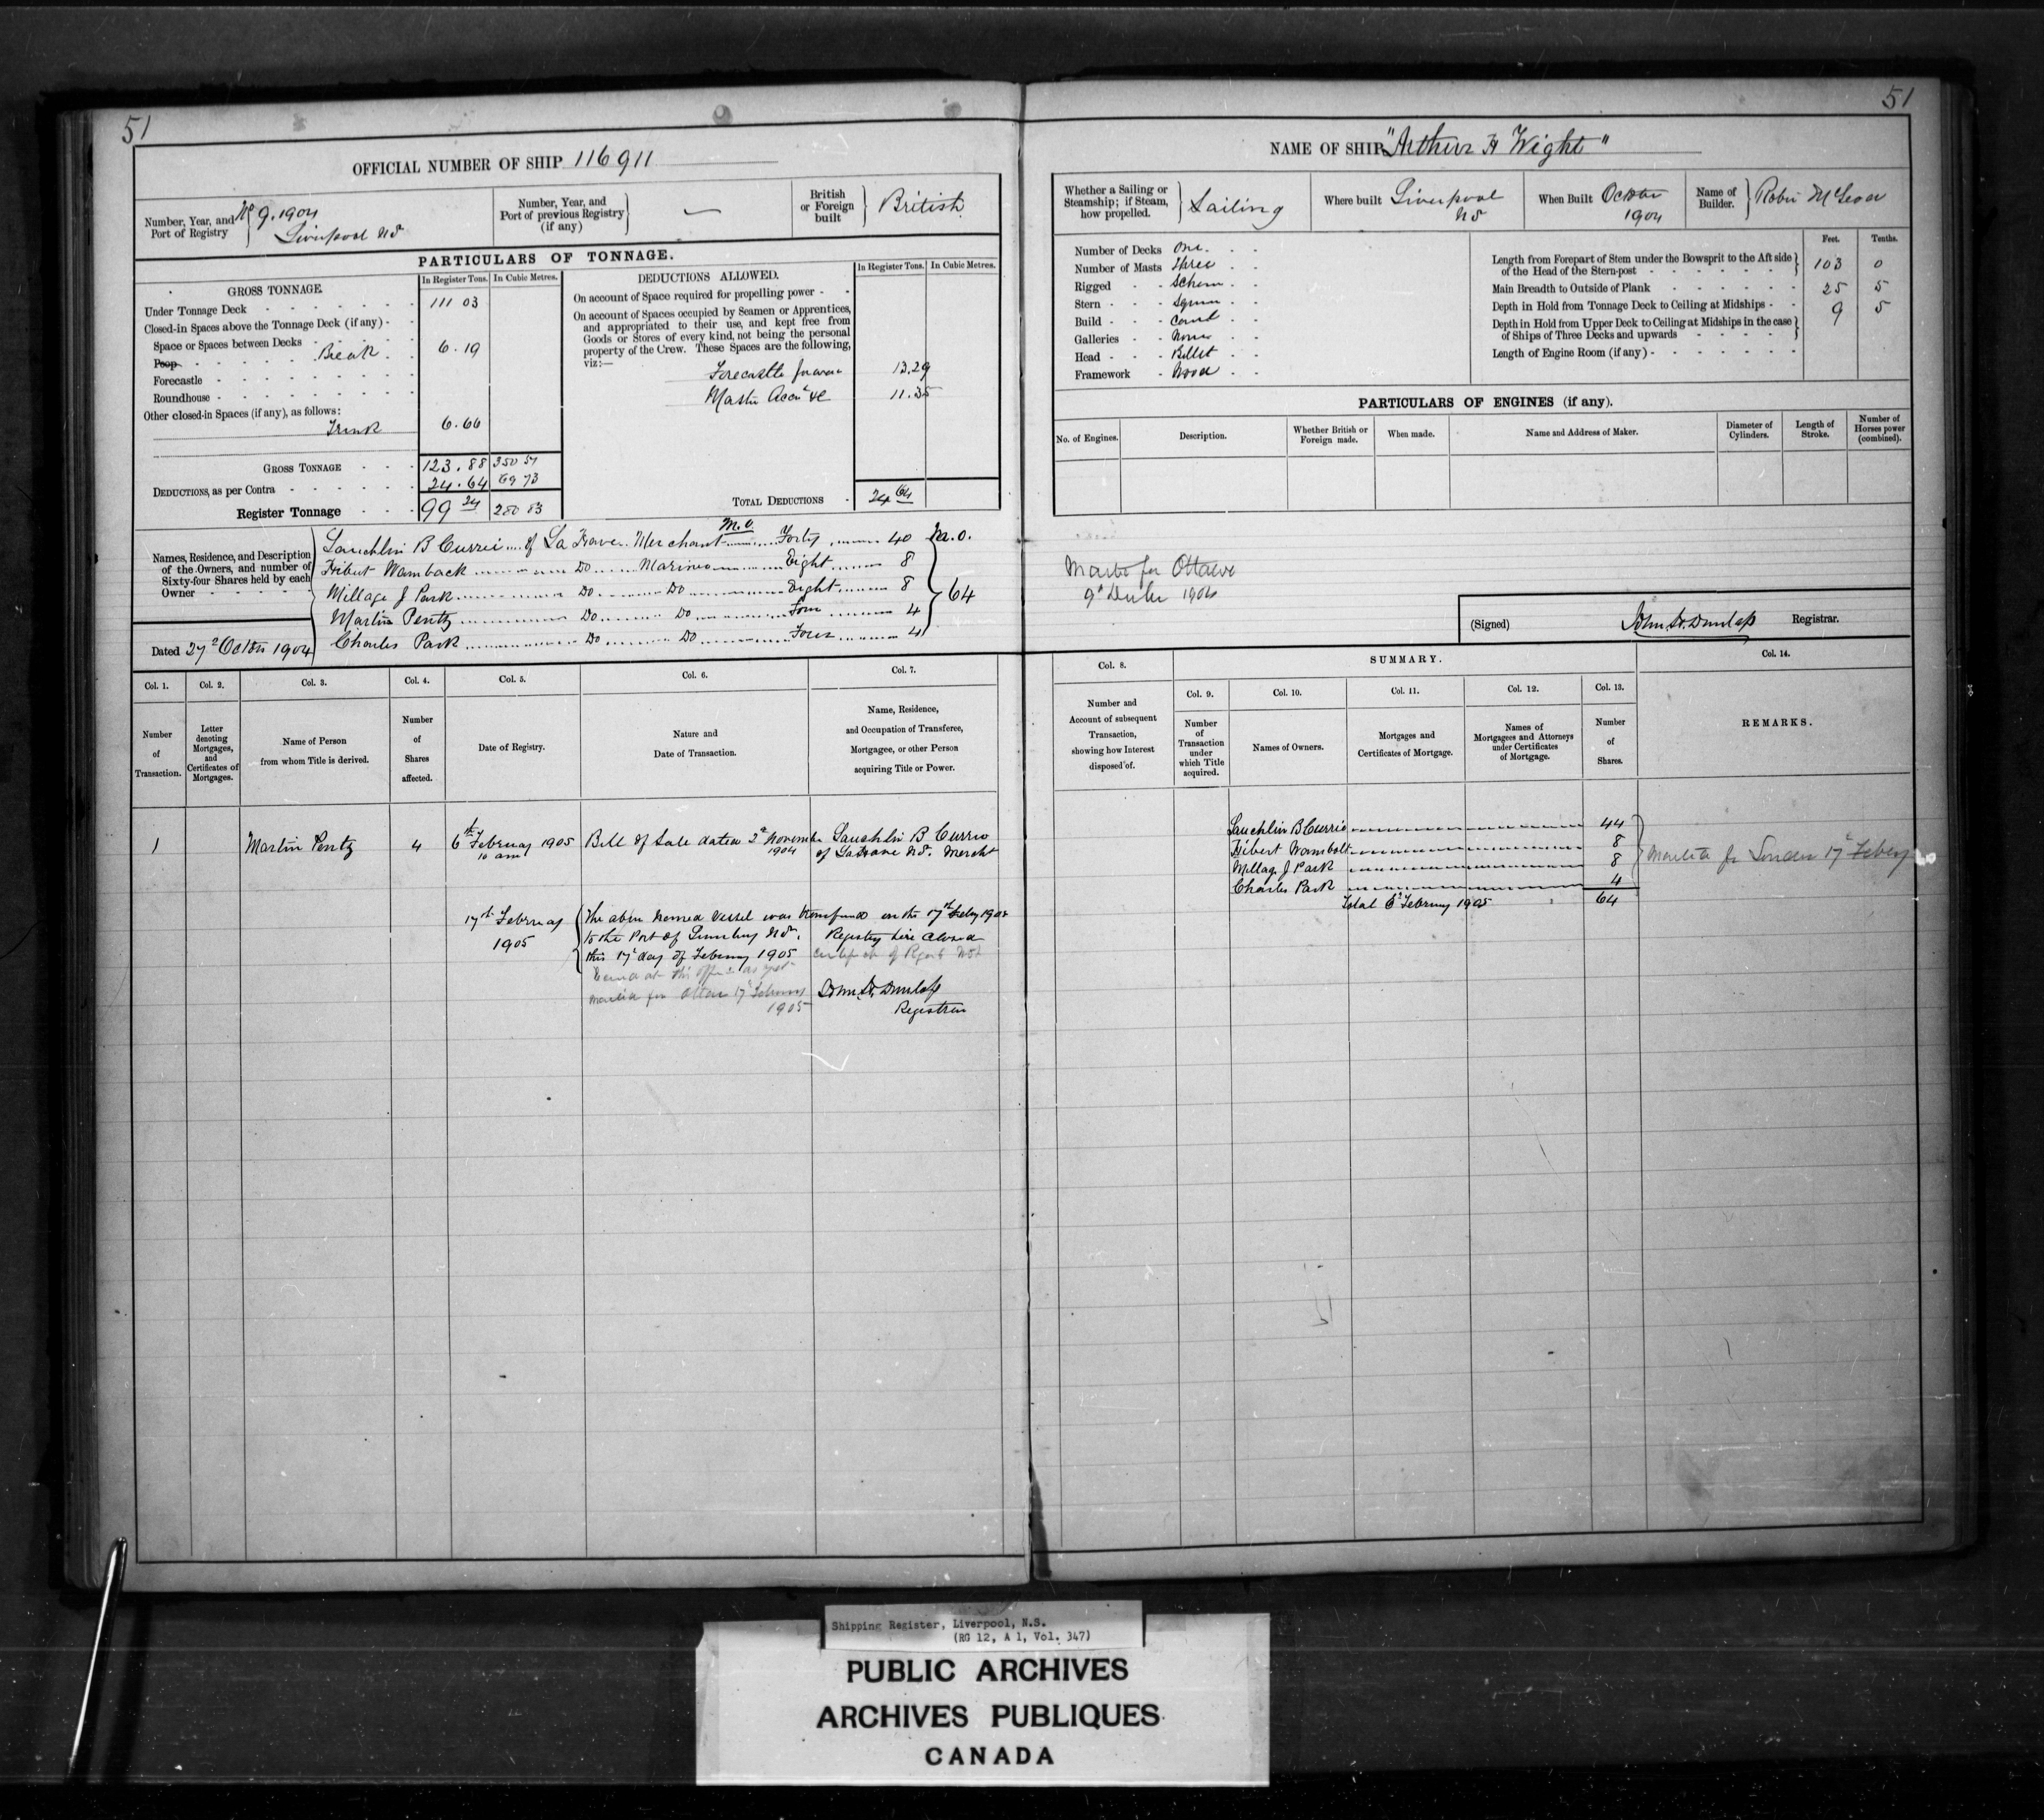 51
OFFICIAL NUMBER OF SHIP 116911
Number, Year, and Port of Registry
No 9. 1904
Liverpool NS
Number, Year, and Port of previous Registry (if any)
—
British or Foreign built
British
PARTICULARS OF TONNAGE.
GROSS TONNAGE
In Register Tons.
In Cubic Metres.
Under Tonnage Deck 111 03
Closed-in Spaces above the Tonnage Deck (if any)
Space or Spaces between Decks
Poop Break 6.19
Forecastle
Roundhouse
Other closed-in Spaces (if any), as follows:
Trunk 6.66
GROSS TONNAGE 123.88 350 57
DEDUCTIONS, as per Contra 24.64 69 73
Register Tonnage 99 24 280 83
DEDUCTIONS ALLOWED.
In Register Tons.
In Cubic Metres.
On account of Space required for propelling power
On account of Spaces occupied by Seamen or Apprentices,
and appropriated to their use, and kept free from
Goods or Stores of every kind, not being the personal
property of the Crew. These Spaces are the following,
viz:—
Forecastle 13.29
Master Accn &c 11.35
TOTAL DEDUCTIONS 24 64
Names, Residence, and Description
of the Owners, and number of
Sixty-four Shares held by each
Owner
M.O.
Lauchlin B Currie of La Have Merchant Forty 40 M.O.
Hibert Wamback Do Marine Eight 8
Millage J Park Do Do Eight 8
64
Martin Pentz Do Do Four 4
Charles Park Do Do Four 4
Dated 27 October 1904
Col. 1.
Number
of
Transaction.
Col. 2.
Letter
denoting
Mortgages,
and
Certificates of
Mortgages.
Col. 3.
Name of Person
from whom Title is derived.
Col. 4.
Number
of
Shares
affected.
Col. 5.
Date of Registry.
Col. 6.
Nature and
Date of Transaction.
Col. 7.
Name, Residence,
and Occupation of Transferee,
Mortgagee, or other Person
acquiring Title or Power.
1 Martin Pentz 4 6th February 1905 Bill of Sale dated 2d November Lauchlin B Currie
10 am 1904 of LaHave NS. Mercht
17th February
1905
The above Named Vessel was transferred on the 17th Feby 1905
to the Port of Lunenburg NS. Registry here Closed
this 17 day of February 1905 Certificate of Regist Not
at this office as yet
Mailed for Ottawa 17 February
1905
John W. Dunlap
Registrar
51
NAME OF SHIP "Arthur H Wight"
Whether a Sailing or
Steamship; if Steam,
how propelled.
Sailing
Where built Liverpool
NS
When Built October
1904
Name of
Builder.
Robie McLeod
Number of Decks One
Number of Masts Three
Rigged Schem
Stern Square
Build Carvel
Galleries None
Head Billet
Framework Wood
Feet. Tenths.
Length from Forepart of Stem under the Bowsprit to the Aft side
of the Head of the Stern-post 103 0
Main Breadth to Outside of Plank 25 5
Depth in Hold from Tonnage Deck to Ceiling at Midships 9 5
Depth in Hold from Upper Deck to Ceiling at Midships in the case
of Ships of Three Decks and upwards
Length of Engine Room (if any)
PARTICULARS OF ENGINES (if any).
No. of Engines.
Description.
Whether British or
Foreign made.
When made.
Name and Address of Maker.
Diameter of
Cylinders.
Length of
Stroke.
Number of
Horses power
(combined).
Mailed for Ottawa
1904
(Signed) John W. Dunlap Registrar.
Col. 8.
Number and
Account of subsequent
Transaction,
showing how Interest
disposed of.
SUMMARY.
Col. 9.
Number
of
Transaction
under
which Title
acquired.
Col. 10.
Names of Owners.
Col. 11.
Mortgages and
Certificates of Mortgage.
Col. 12.
Names of
Mortgagees and Attorneys
under Certificates
of Mortgage.
Col. 13.
Number
of
Shares.
Col. 14.
REMARKS.
Lauchlin B Currie 44
Hibert Wambolt 8
Millage J Park 8
Charles Park 4
Total 6 February 1905 64
Mailed for London 17 Feby
Shipping Register, Liverpool, N.S.
(RG 12, A 1, Vol. 347)
PUBLIC ARCHIVES
ARCHIVES PUBLIQUES
CANADA